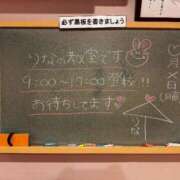 必ず黒板を書きましょう
りなの教室です
9:00〜17:00登校!!
お待ちしてます♡
♡月×日
(月曜)
りな